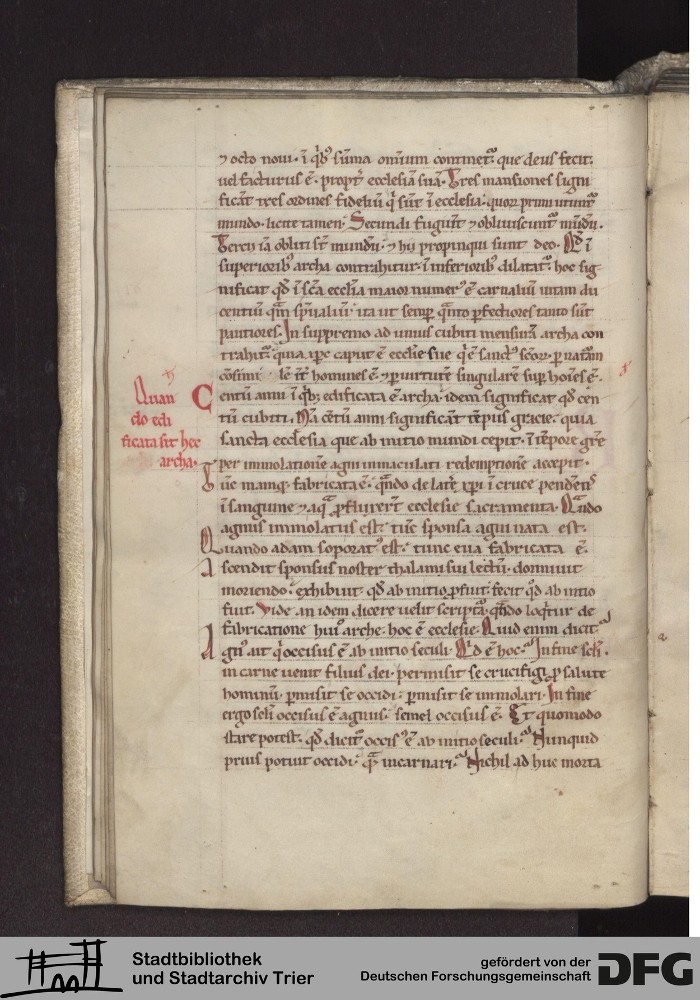 ⁊ octo noui. ī qͥbꝰ sūma omnium continetᷣ que deus fecit.
uel facturus ē. propt̄ ecclesiā suā. Tres mansiones signi
ficānt tres ordines fidelium q̄ sūt ī ecclesia. quorᷣ primi utuntᷣ
mundo. licite tamen. Secundi fugiūt ⁊ obliuiscuntᷣ mūdū.
Tercii iā obliti sr̄t mundū. ⁊ hii propinqui sunt deo. Qd̄ ī
superioribꝰ archa contrahitur. ī inferioribꝰ dilatatᷣ. hoc sig-
nificat qd̄ ī sc̄a eccl̄ia maior numerꝰ ē carnaliū uitam du
centiū qm̄ sp̄ualiū. ita ut semꝑ qͣnto ꝑfectiores tanto sūt
pauciores. In suppremo ad unius cubiti mensurā archa con
trahitᷣ. quia xp̄c caput ē eccl̄ie sue
hoīes ē.
Quan
do edi
ficata sit hec
archa.
Centū anni ī qͥbꝫ edificata ē archa. idem significat qd̄ cen
tū cubiti. Nā cētū anni significāt tēpus gracie. quia
sancta ecclesia que ab initio mundi cepit. ī tēpore gr̄e
per immolationē agni immaculati redemptionē accepit.
Tūc manꝗ fabricata ē. qn̄do de latē xp̄i ī cruce pendentꝭ
ī sanguine ⁊ aqͣ ꝓfluxert̄ ecclesie sacramenta. Quādo
agnus immolatus est. tūc sponsa agni nata est.
Quando adam soporatꝰ est. tunc eua fabricata ē.
Ascendit sponsus noster thalami sui lectū. dormiuit
moriendo. exhibuit. qd̄ ab initio ꝓfuit. fecit qd̄ ab initio
fuit. Vide an idem dicere uelit scriptͣ. qn̄do loqͥtur de
fabricatione huiꝰ arche. hoc ē ecclesie. Quid enim dicit.
Agnꝰ ait qͥ occisus ē ab initio seculi. Qd ē hoc. In fine sc̄li.
in carne uenit filius dei. permisit se crucifigi. ꝓ salute
hominū. ꝑmisit se occidi. ꝑmisit se immolari. In fine
ergo sc̄li occisus ē agnus. semel occisus ē. Et quomodo
stare potest. qd̄ dicitᷣ occisꝰ ē ab initio seculi. Nunquid
prius potuit occidi. qͣm incarnari. Nichil ad huc morta
Stadtbibliothek
und Stadtarchiv Trier
gefördert von der
Deutschen Forschungsgemeinschaft
DFG